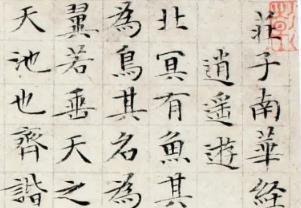 莊子南華経
逍遥遊
北冥有魚其
為鳥其名為
翼若垂天之
天池也齊諧